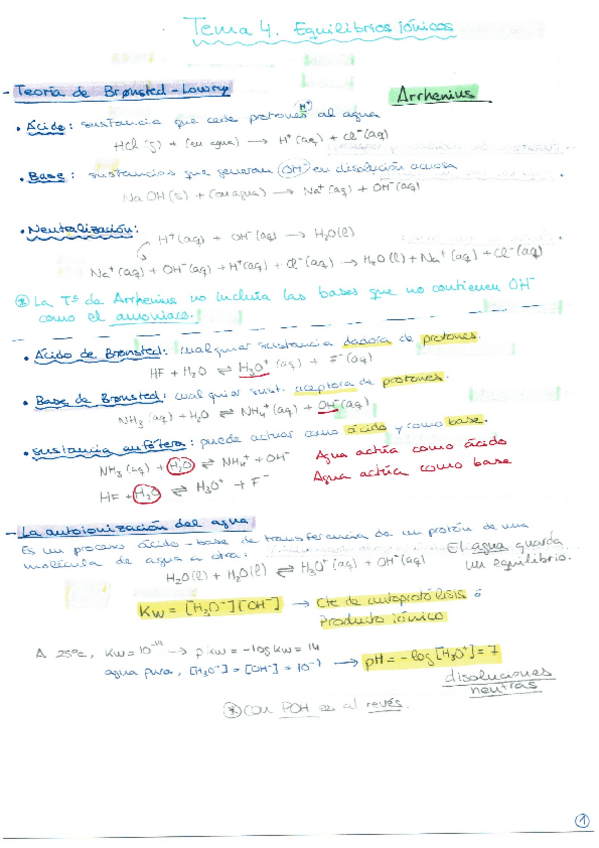 Tema 4. Equilibrios iónicos
- Teoría de Brønsted-Lowry
Arrhenius
• Ácido: sustancia que cede protones al agua
H⁺
HCl (g) + (en agua) → H⁺ (aq) + Cl⁻ (aq)
• Base: sustancias que generan OH⁻ en disolución acuosa
NaOH (s) + (en agua) → Na⁺ (aq) + OH⁻ (aq)
• Neutralización:
H⁺ (aq) + OH⁻ (aq) → H₂O (l)
Na⁺ (aq) + OH⁻ (aq) + H⁺ (aq) + Cl⁻ (aq) → H₂O (l) + Na⁺ (aq) + Cl⁻ (aq)
* La Tª de Arrhenius no incluía las bases que no contienen OH⁻
como el amoniaco.
• Ácido de Brønsted: cualquier sustancia dadora de protones.
HF + H₂O ⇌ H₃O⁺ (aq) + F⁻ (aq)
• Base de Brønsted: cualquier sust. aceptora de protones.
NH₃ (aq) + H₂O ⇌ NH₄⁺ (aq) + OH⁻ (aq)
• sustancia anfótera: puede actuar como ácido y como base.
NH₃ (aq) + H₂O ⇌ NH₄⁺ + OH⁻ Agua actúa como ácido
HF + H₂O ⇌ H₃O⁺ + F⁻ Agua actúa como base
- La autoionización del agua
Es un proceso ácido-base de transferencia de un protón de una
molécula de agua a otra:
H₂O (l) + H₂O (l) ⇌ H₃O⁺ (aq) + OH⁻ (aq)
El agua guarda
un equilibrio.
Kw = [H₃O⁺][OH⁻] → Cte de autoprotólisis ó
Producto iónico
A 25ºC, Kw = 10⁻¹⁴ → pKw = -log Kw = 14
agua pura, [H₃O⁺] = [OH⁻] = 10⁻⁷ → pH = -log [H₃O⁺] = 7
disoluciones
neutras
* con POH es al revés.
1